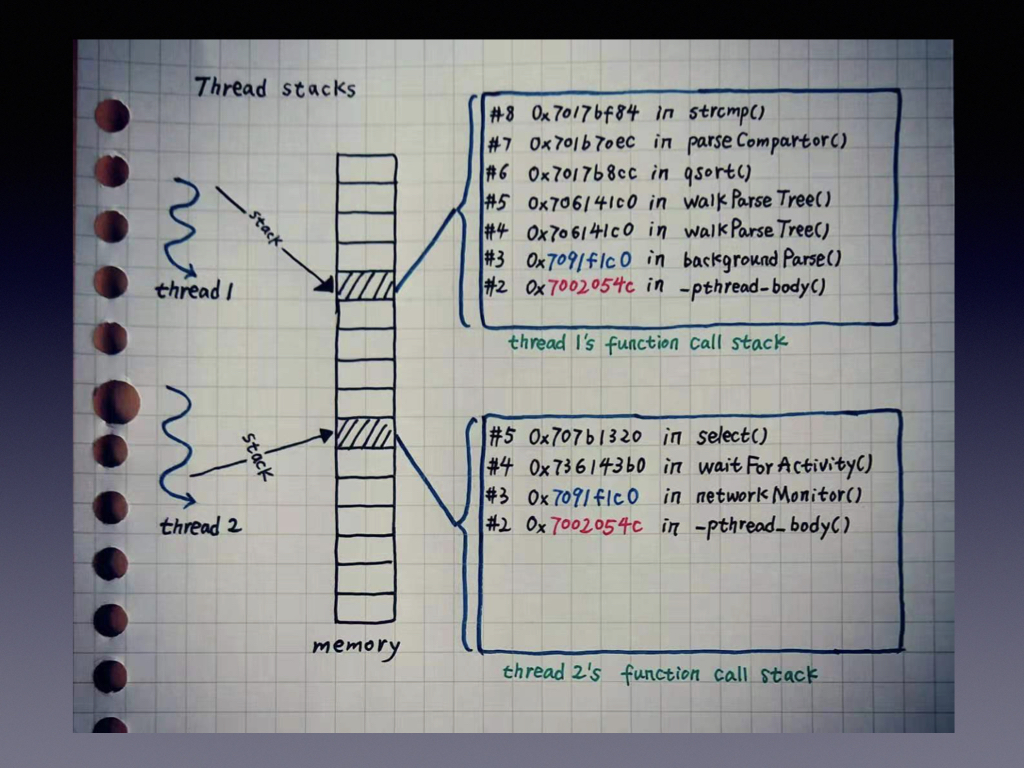 Thread stacks
stack
thread 1
stack
thread 2
memory
#8 0x7017bf84 in strcmp()
#7 0x701b70ec in parseCompartor()
#6 0x7017b8cc in qsort()
#5 0x706141c0 in walkParseTree()
#4 0x706141c0 in walkParseTree()
#3 0x7091f1c0 in backgroundParse()
#2 0x7002054c in -pthread-body()
thread 1's function call stack
#5 0x707b1320 in select()
#4 0x736143b0 in waitForActivity()
#3 0x7091f1c0 in networkMonitor()
#2 0x7002054c in -pthread_body()
thread 2's function call stack